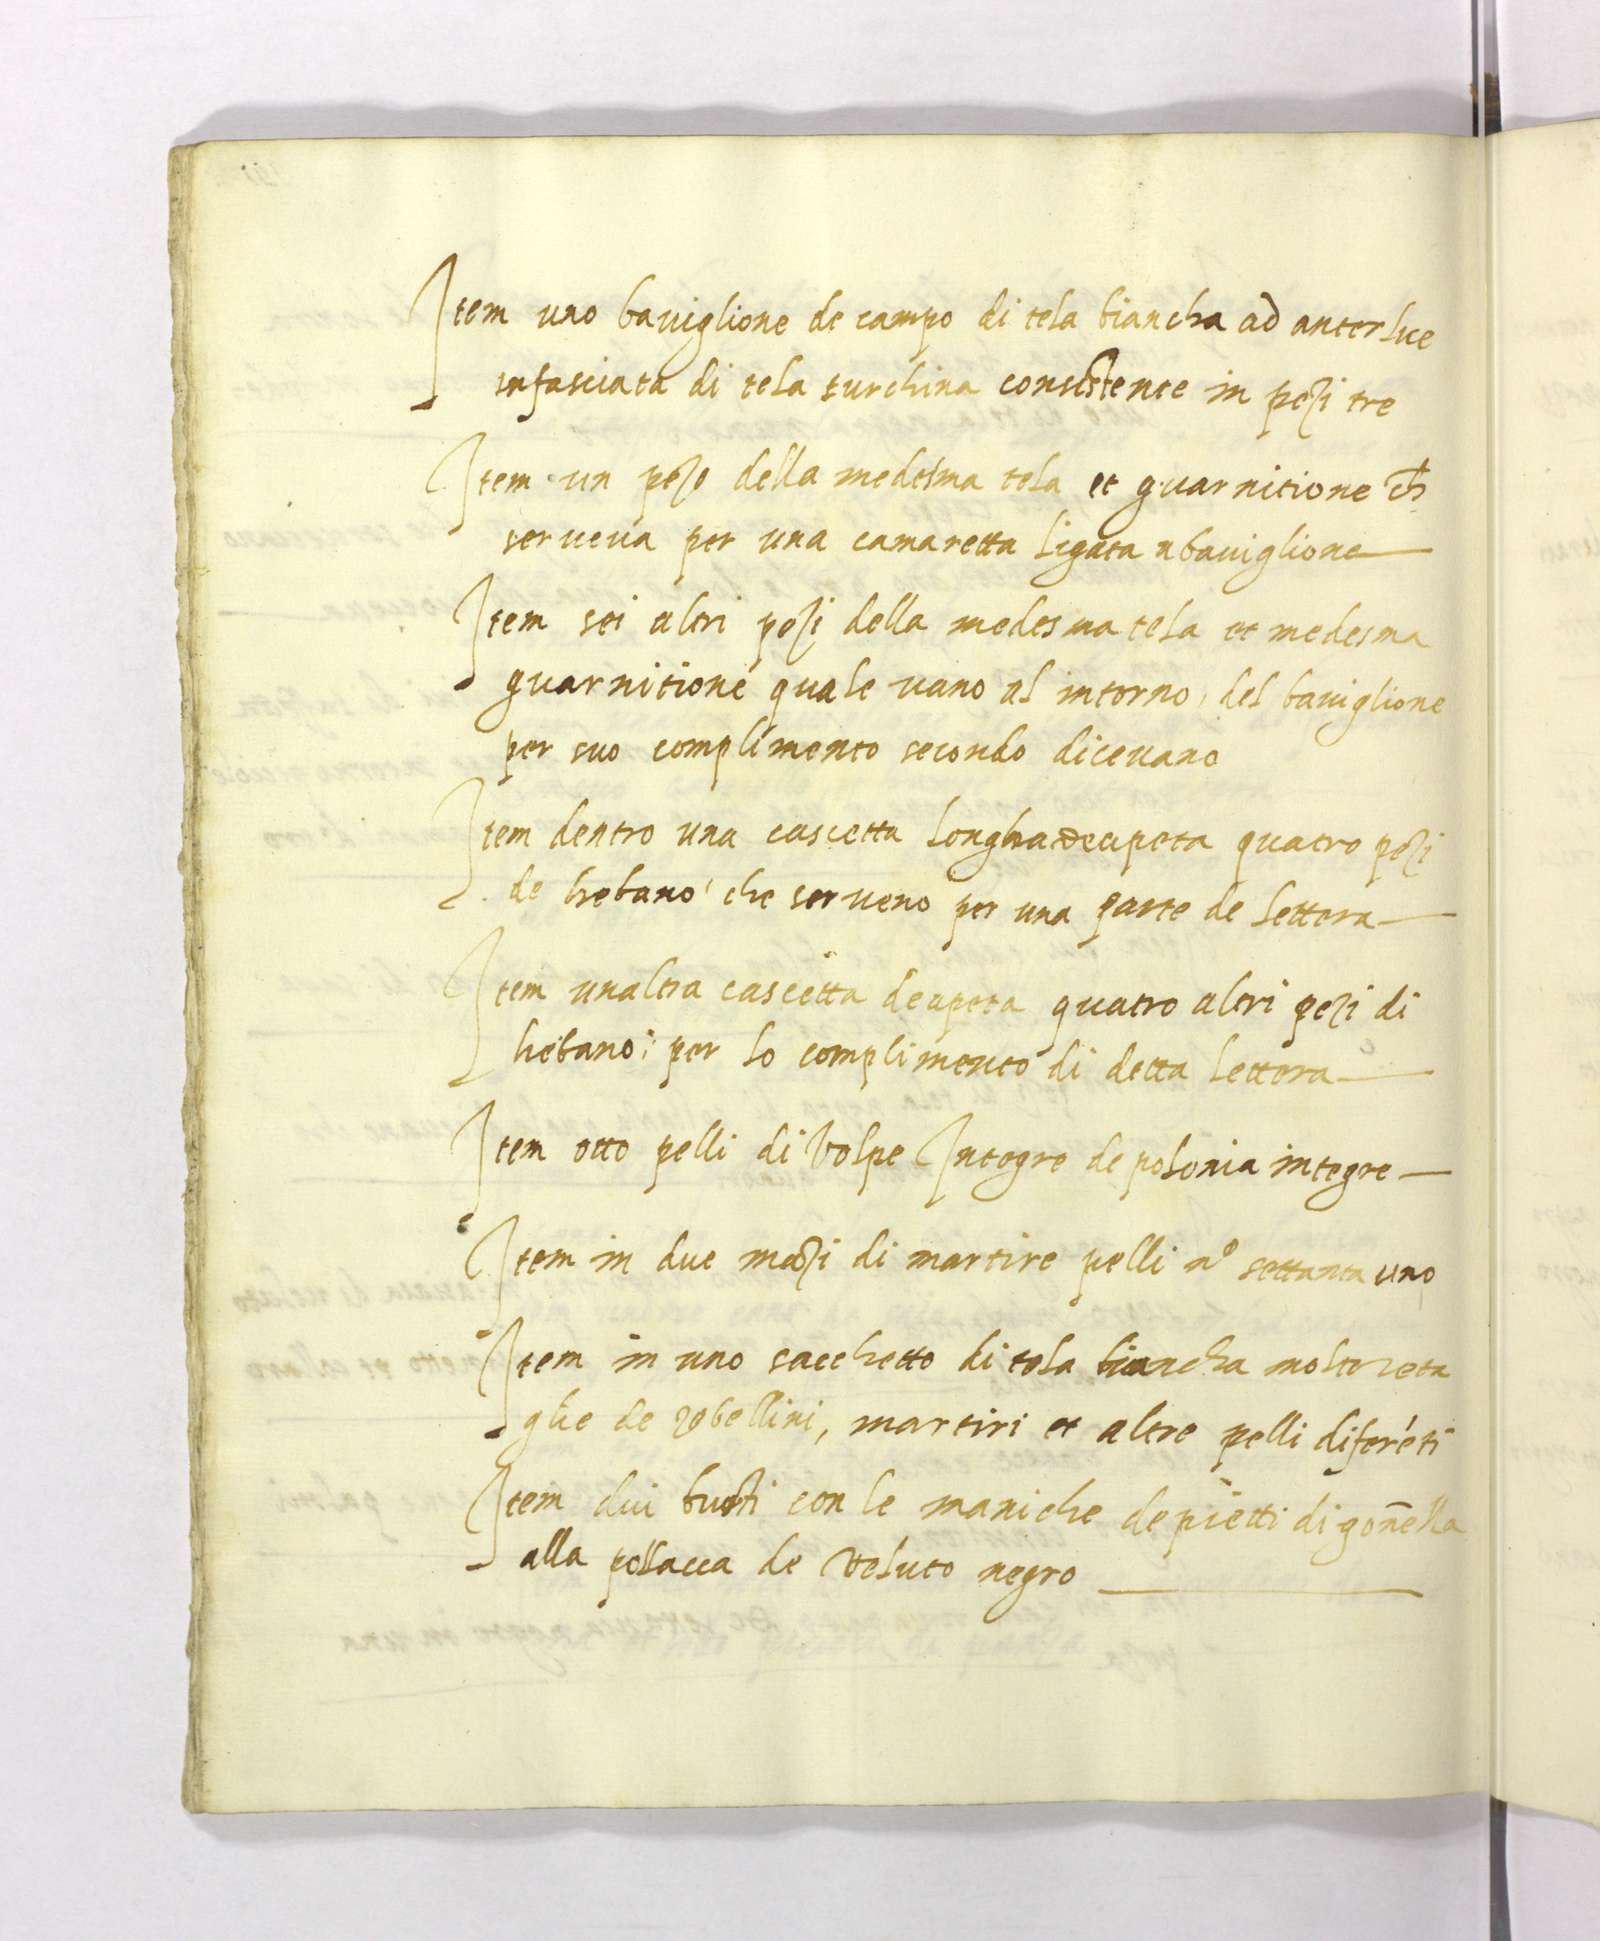 Item uno baviglione de campo di tela biancha ad anterlice
infasciata di tela turchina consistente in pezi tre
Item un pezo della medesma tela et guarnitione ch
serveva per una camaretta ligata n baviglione
Item sei altri pezi della medesma tela et medesma
guarnitione quale vano al intorno, del baviglione
per suo complimento secondo dicevano
Item dentro una cascetta longha de apeta quatro pezi
de hebano che serveno per una parte de lettera
Item unaltra cascetta de apeta quatro altri pezi di
hebano; per lo complimento di detta lettera
Item otto pelli di Volpe Integre de polonia integre
Item in due mazi di martire pelli n.o settanta uno
Item in uno sacchetto di tela biancha molte reta
glie de zebellini, martiri et altre pelli diferéti
Item dui busti con le maniche de pietti di gon̄ella
alla pollacca de Veluto negro